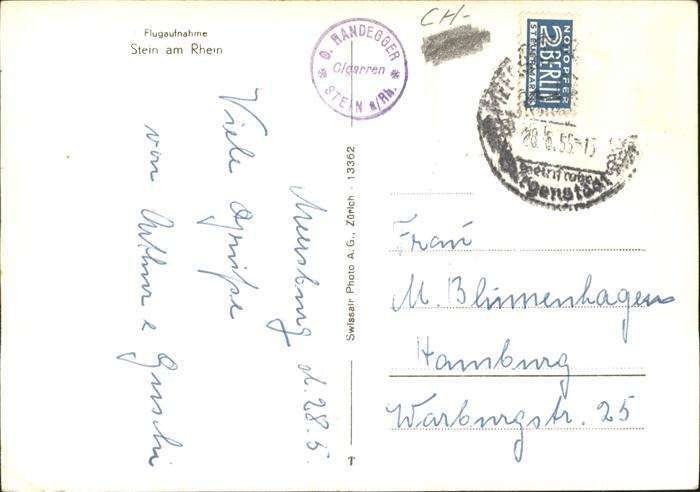 Flugaufnahme
Stein am Rhein
O. RANDEGGER
Cigarren
STEIN a/Rh.
CH-
NOTOPFER
2 BERLIN
STEUERMARKE
28.5.55-15
Swissair Photo A. G., Zürich - 13362
Meersburg d. 28.5.
Viele Grüße
von Arthur &
Frau
M. Blumenhagen
Hamburg
Warburgstr. 25